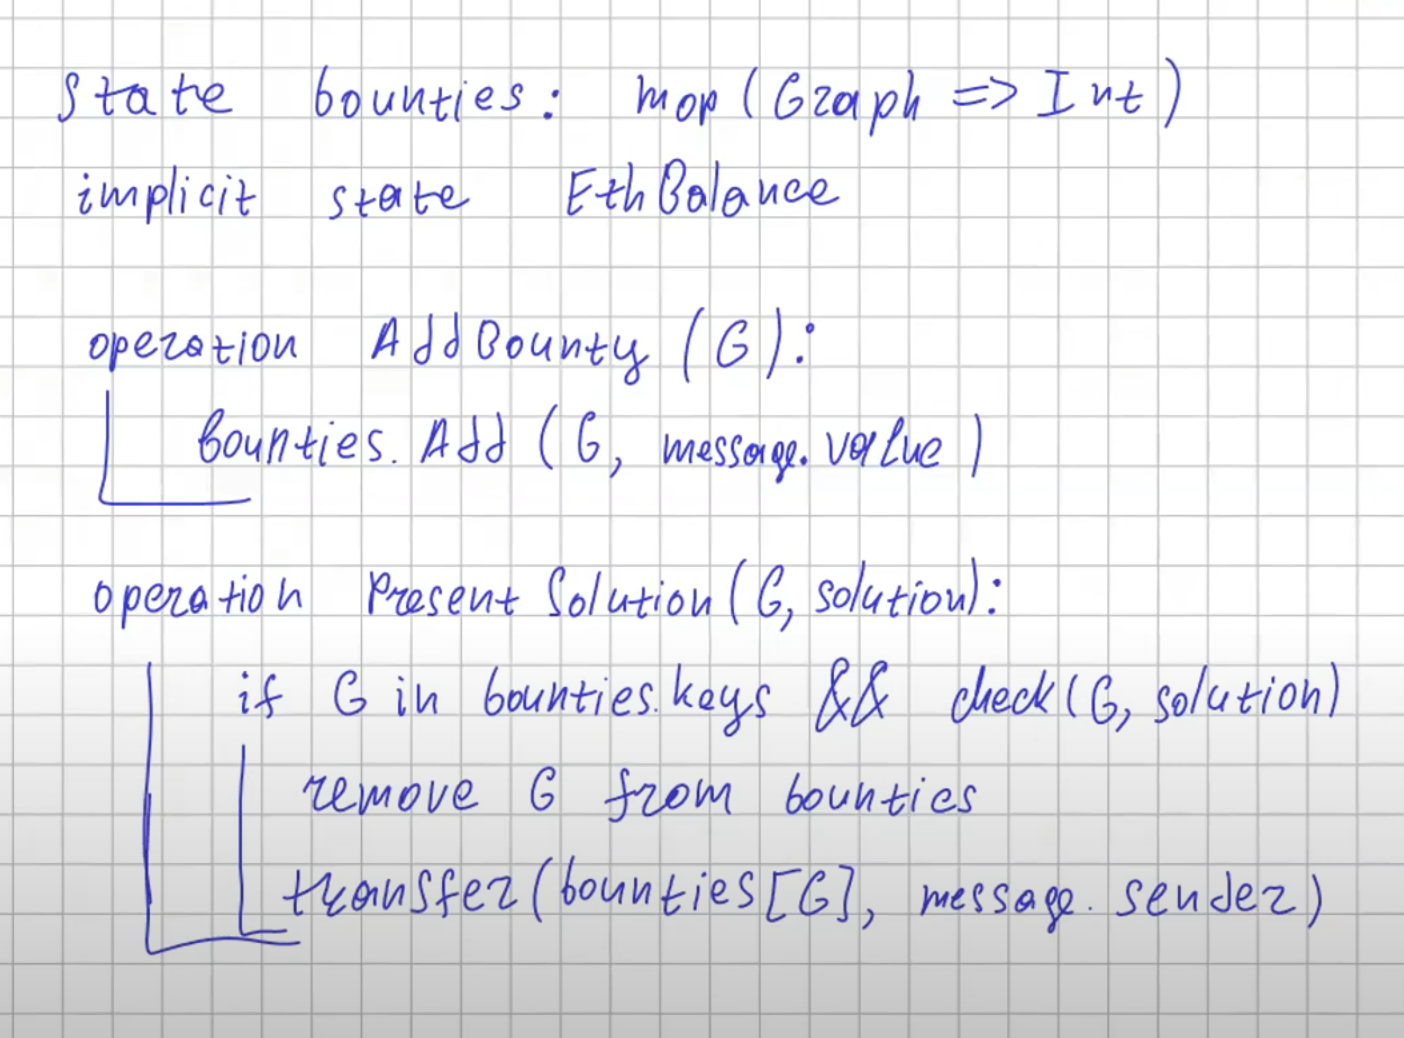 state bounties: map (Graph => Int)
implicit state EthBalance
operation AddBounty (G):
bounties. Add (G, message.value)
operation Present Solution (G, solution):
if G in bounties.keys && check (G, solution)
remove G from bounties
transfer (bounties[G], message.sender)